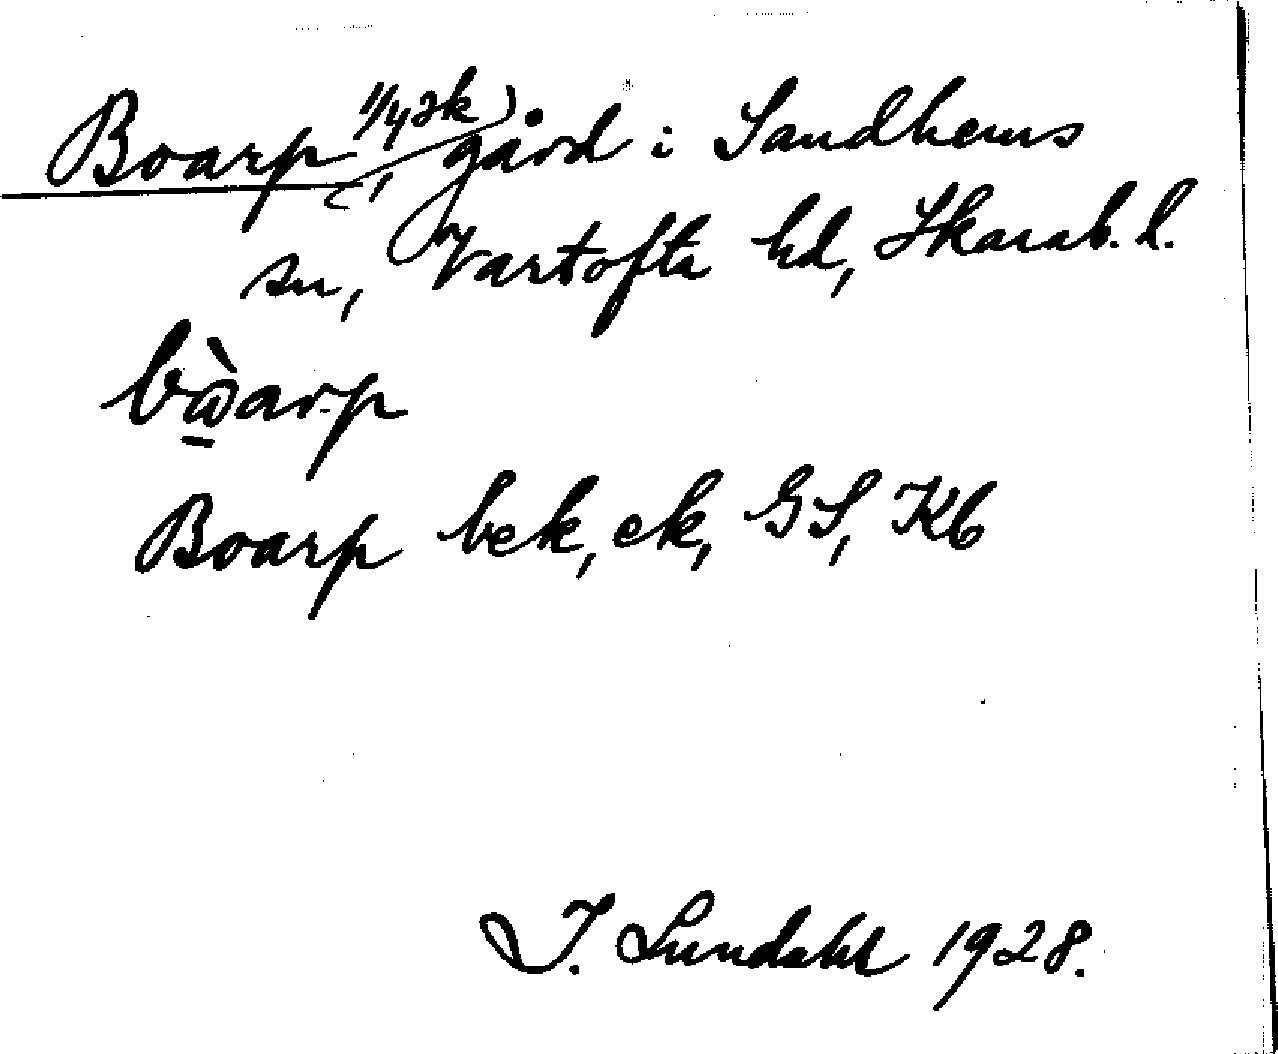 Boarp, 1/4 sk gård i Sandhems
sn, Vartofta hd, Skarab. l.
bὼarp
Boarp bek, ek, GS, Kb
I. Lundahl 1928.